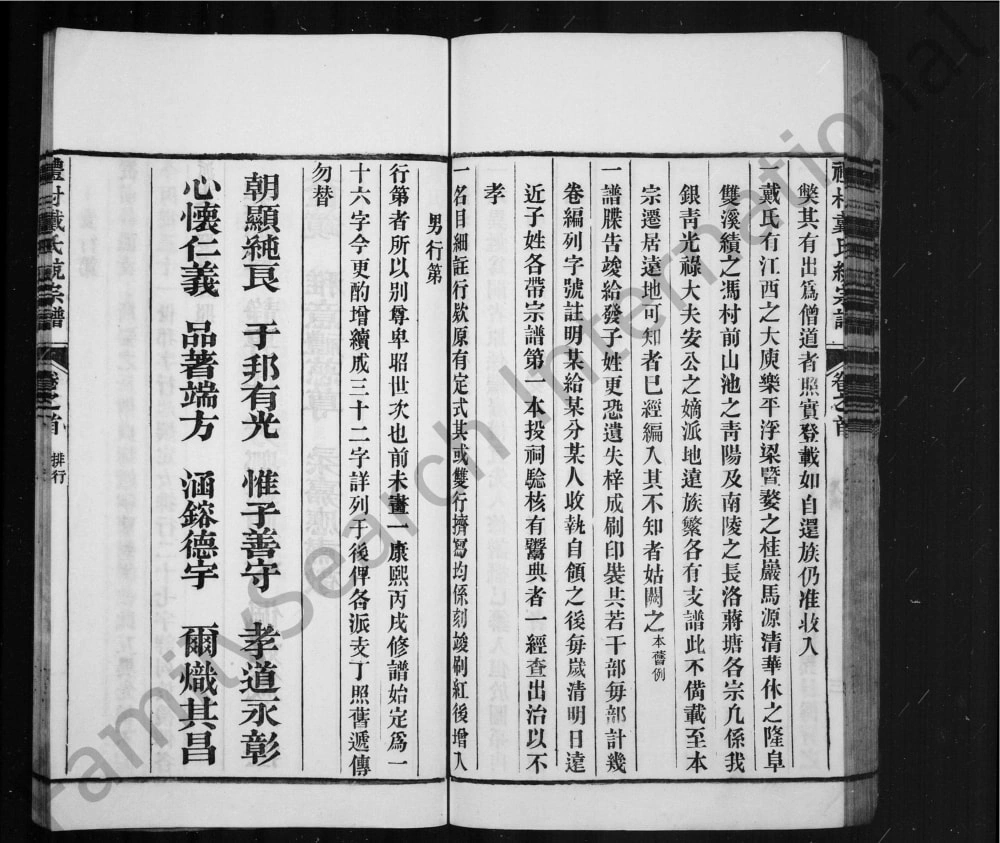 禮村戴氏統宗譜 卷之首
樊其有出爲僧道者照實登載如自還族仍准收入
戴氏有江西之大庾樂平浮梁暨婺之桂巖馬源清華休之隆阜
雙溪績之馮村前山池之靑陽及南陵之長洛蔣塘各宗凢係我
銀靑光祿大夫安公之嫡派地遠族繁各有支譜此不備載至本
宗遷居遠地可知者巳經編入其不知者姑闕之本舊例
一譜牒告竣給發子姓更恐遺失梓成刷印裝共若干部每部計幾
卷編列字號註明某給某分某人收執自領之後每歲清明日遠
近子姓各帶宗譜第一本投祠驗核有鬻典者一經查出治以不
孝
一名目細註行欵原有定式其或雙行擠寫均係刻竣刷紅後增入
男行第
行第者所以別尊卑昭世次也前未畫一康熙丙戌修譜始定爲一
十六字今更酌增續成三十二字詳列于後俾各派支丁照舊遞傳
勿替
朝顯純良 于邦有光 惟子善守 孝道永彰
心懷仁義 品著端方 涵鎔德宇 爾熾其昌
禮村戴氏統宗譜 卷之首 排行
FamilySearch International